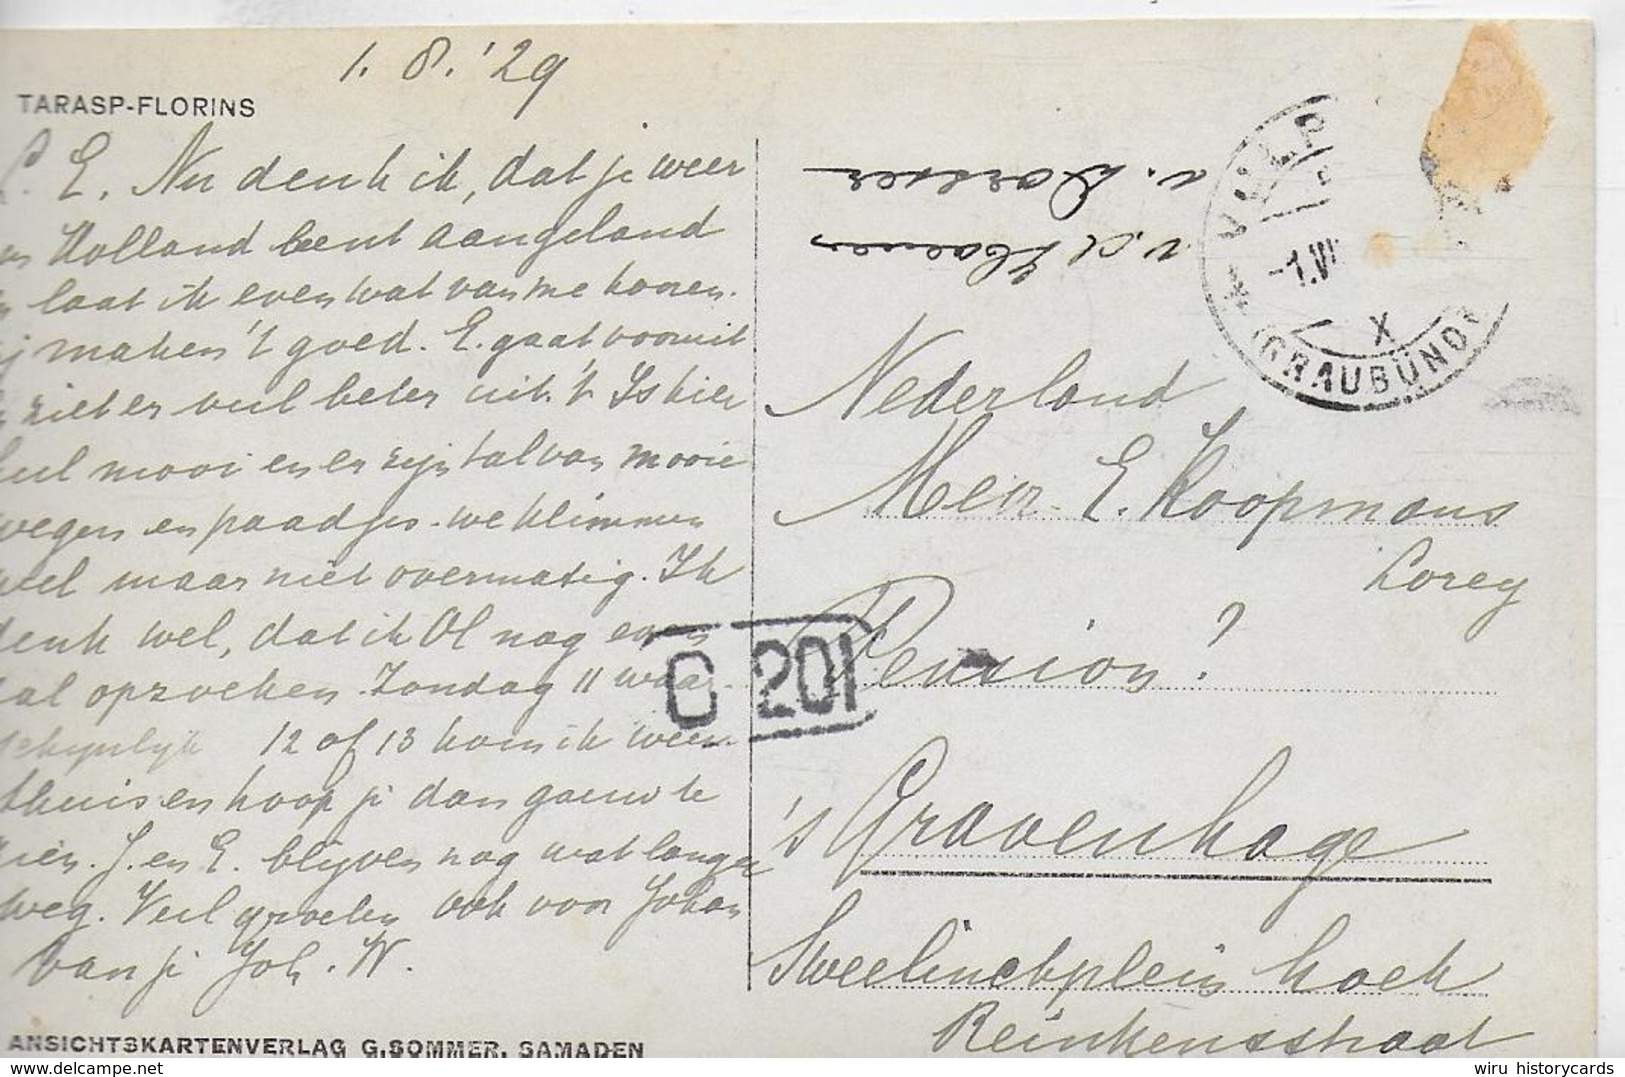 1. 8. '29
TARASP-FLORINS
L. E. Nu denk ik, dat je weer
in Holland bent aangeland
en laat ik even wat van me hooren.
Wij maken 't goed. E. gaat vooruit
en ziet er veel beter uit. 't Is hier
heel mooi en er zijn tal van mooie
wegen en paadjes. we klimmen
veel maar niet overmatig. Ik
denk wel, dat ik Ol nog even
zal opzoeken. Zondag 11 waar
schijnlijk 12 of 13 kom ik weer
thuis en hoop je dan gauw te
zien. J. en E. blijven nog wat langer
weg. Veel groeten ook voor Johan
van je Joh. W.
ANSICHTSKARTENVERLAG G. SOMMER, SAMADEN
v. d. Hoeven
VULP
-1.VII
X
(GRAUBÜND
C 201
Nederland
Mevr. E. Koopmans
Lorey
Pension ?
's Gravenhage
Sweelinckplein hoek
Reinkensstraat
wiru historycards